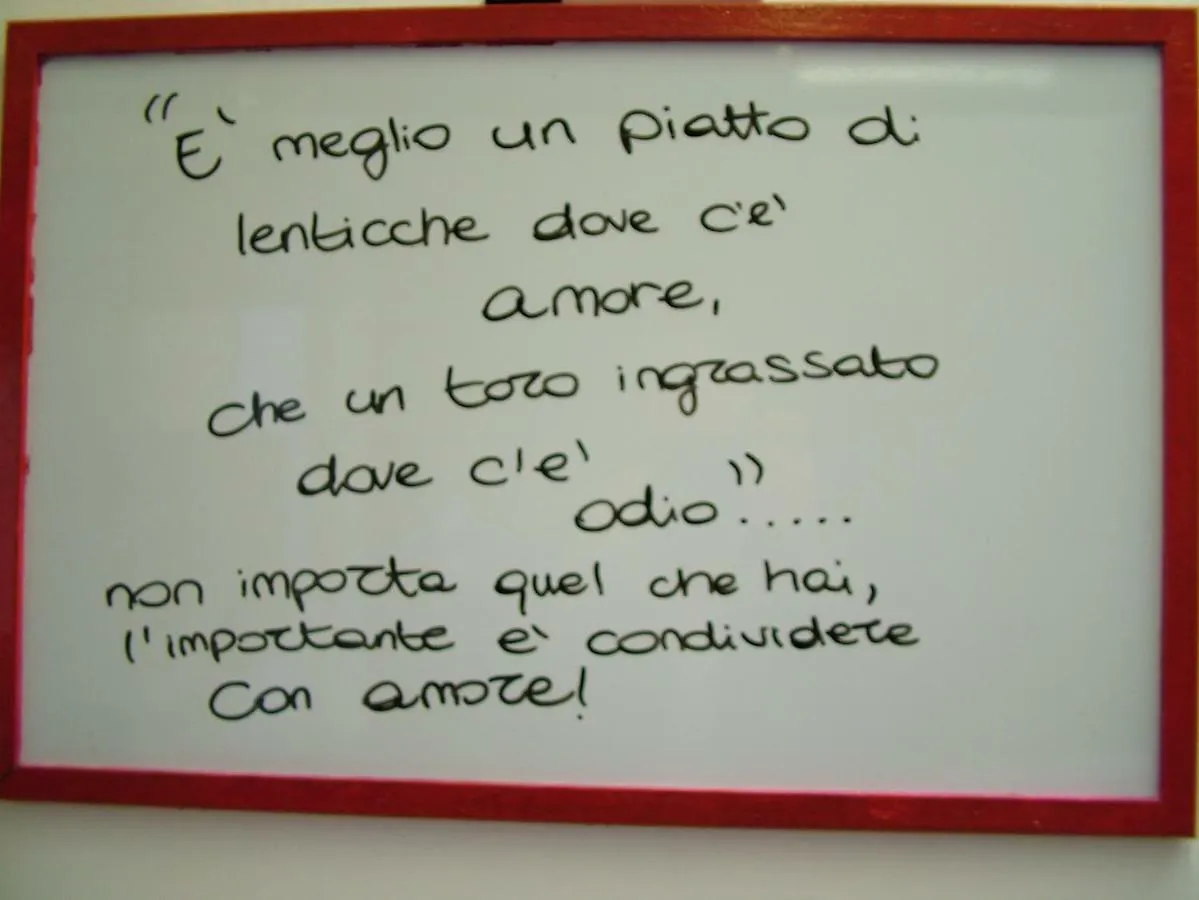 "E' meglio un piatto di
lenticche dove c'e'
amore,
che un toro ingrassato
dove c'e'
odio".....
non importa quel che hai,
l'importante e' condividere
con amore!